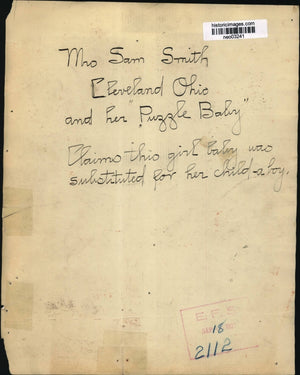 historicimages.com
neo03241
Mrs Sam Smith
Cleveland Ohio
and her "Puzzle Baby"
Claims this girl baby was
substituted for her child-a boy.
E.F.S
18
2112